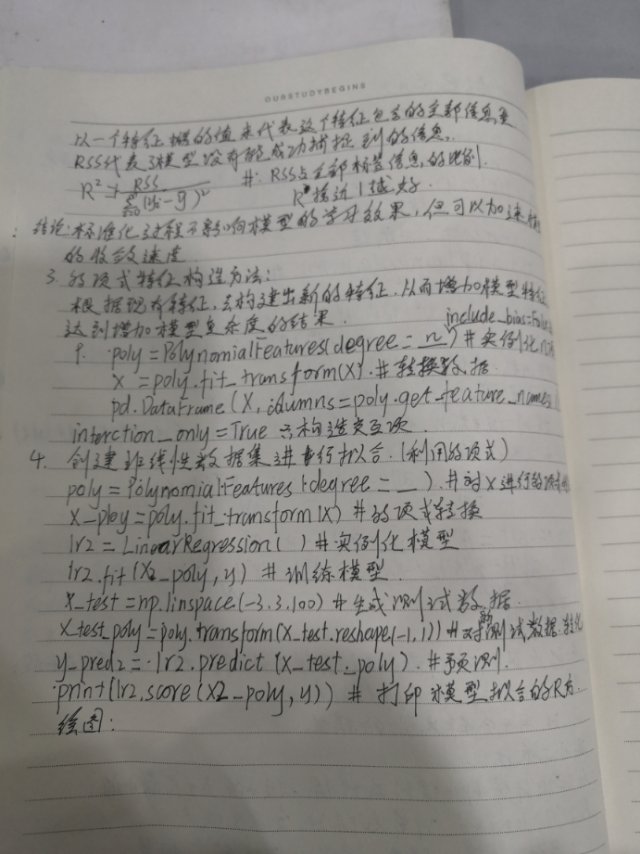 OURSTUDYBEGINS
以一个特征据的值来代表这个特征包含的全部信息量
RSS代表了模型没有能成功捕捉到的信息.
R²=1-RSS/Σ(yi-ȳ)² #: RSS与全部标签信息的比例. R²接近1越好.
结论:标准化过程不影响模型的学习效果,但可以加速
的收敛速度
3. 多项式特征构造方法:
根据现有特征,去构建出新的特征,从而增加模型特征
达到增加模型复杂度的结果. include_bias=False
1. poly=PolynomialFeatures(degree=n) #实例化
X=poly.fit_transform(X).#转换数据
pd.DataFrame(X,columns=poly.get_feature_names(
interction_only=True 只构造交互项
4. 创建非线性数据集进行拟合.(利用多项式)
poly=PolynomialFeatures(degree=_).#对X进行多项式
X_ploy=poly.fit_transform(X) #多项式转换
lr2=LinearRegression() #实例化模型
lr2.fit(X2_poly,y) #训练模型.
X_test=np.linspace(-3.3,100) #生成测试数据.
X_test_poly=poly.transform(X_test.reshape(-1,1)) #对测试数据转化
y_pred2=lr2.predict(X_test_poly).#预测.
print(lr2.score(X2_poly,y)) #打印模型拟合的R方.
绘图: